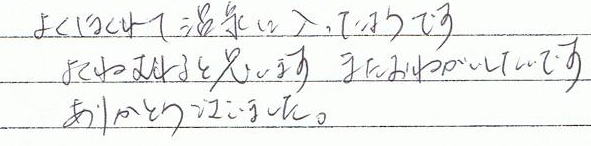 よくほぐれて温泉に入っているようです
よくねむれると思います またおねがいしたいです
ありがとうございました。